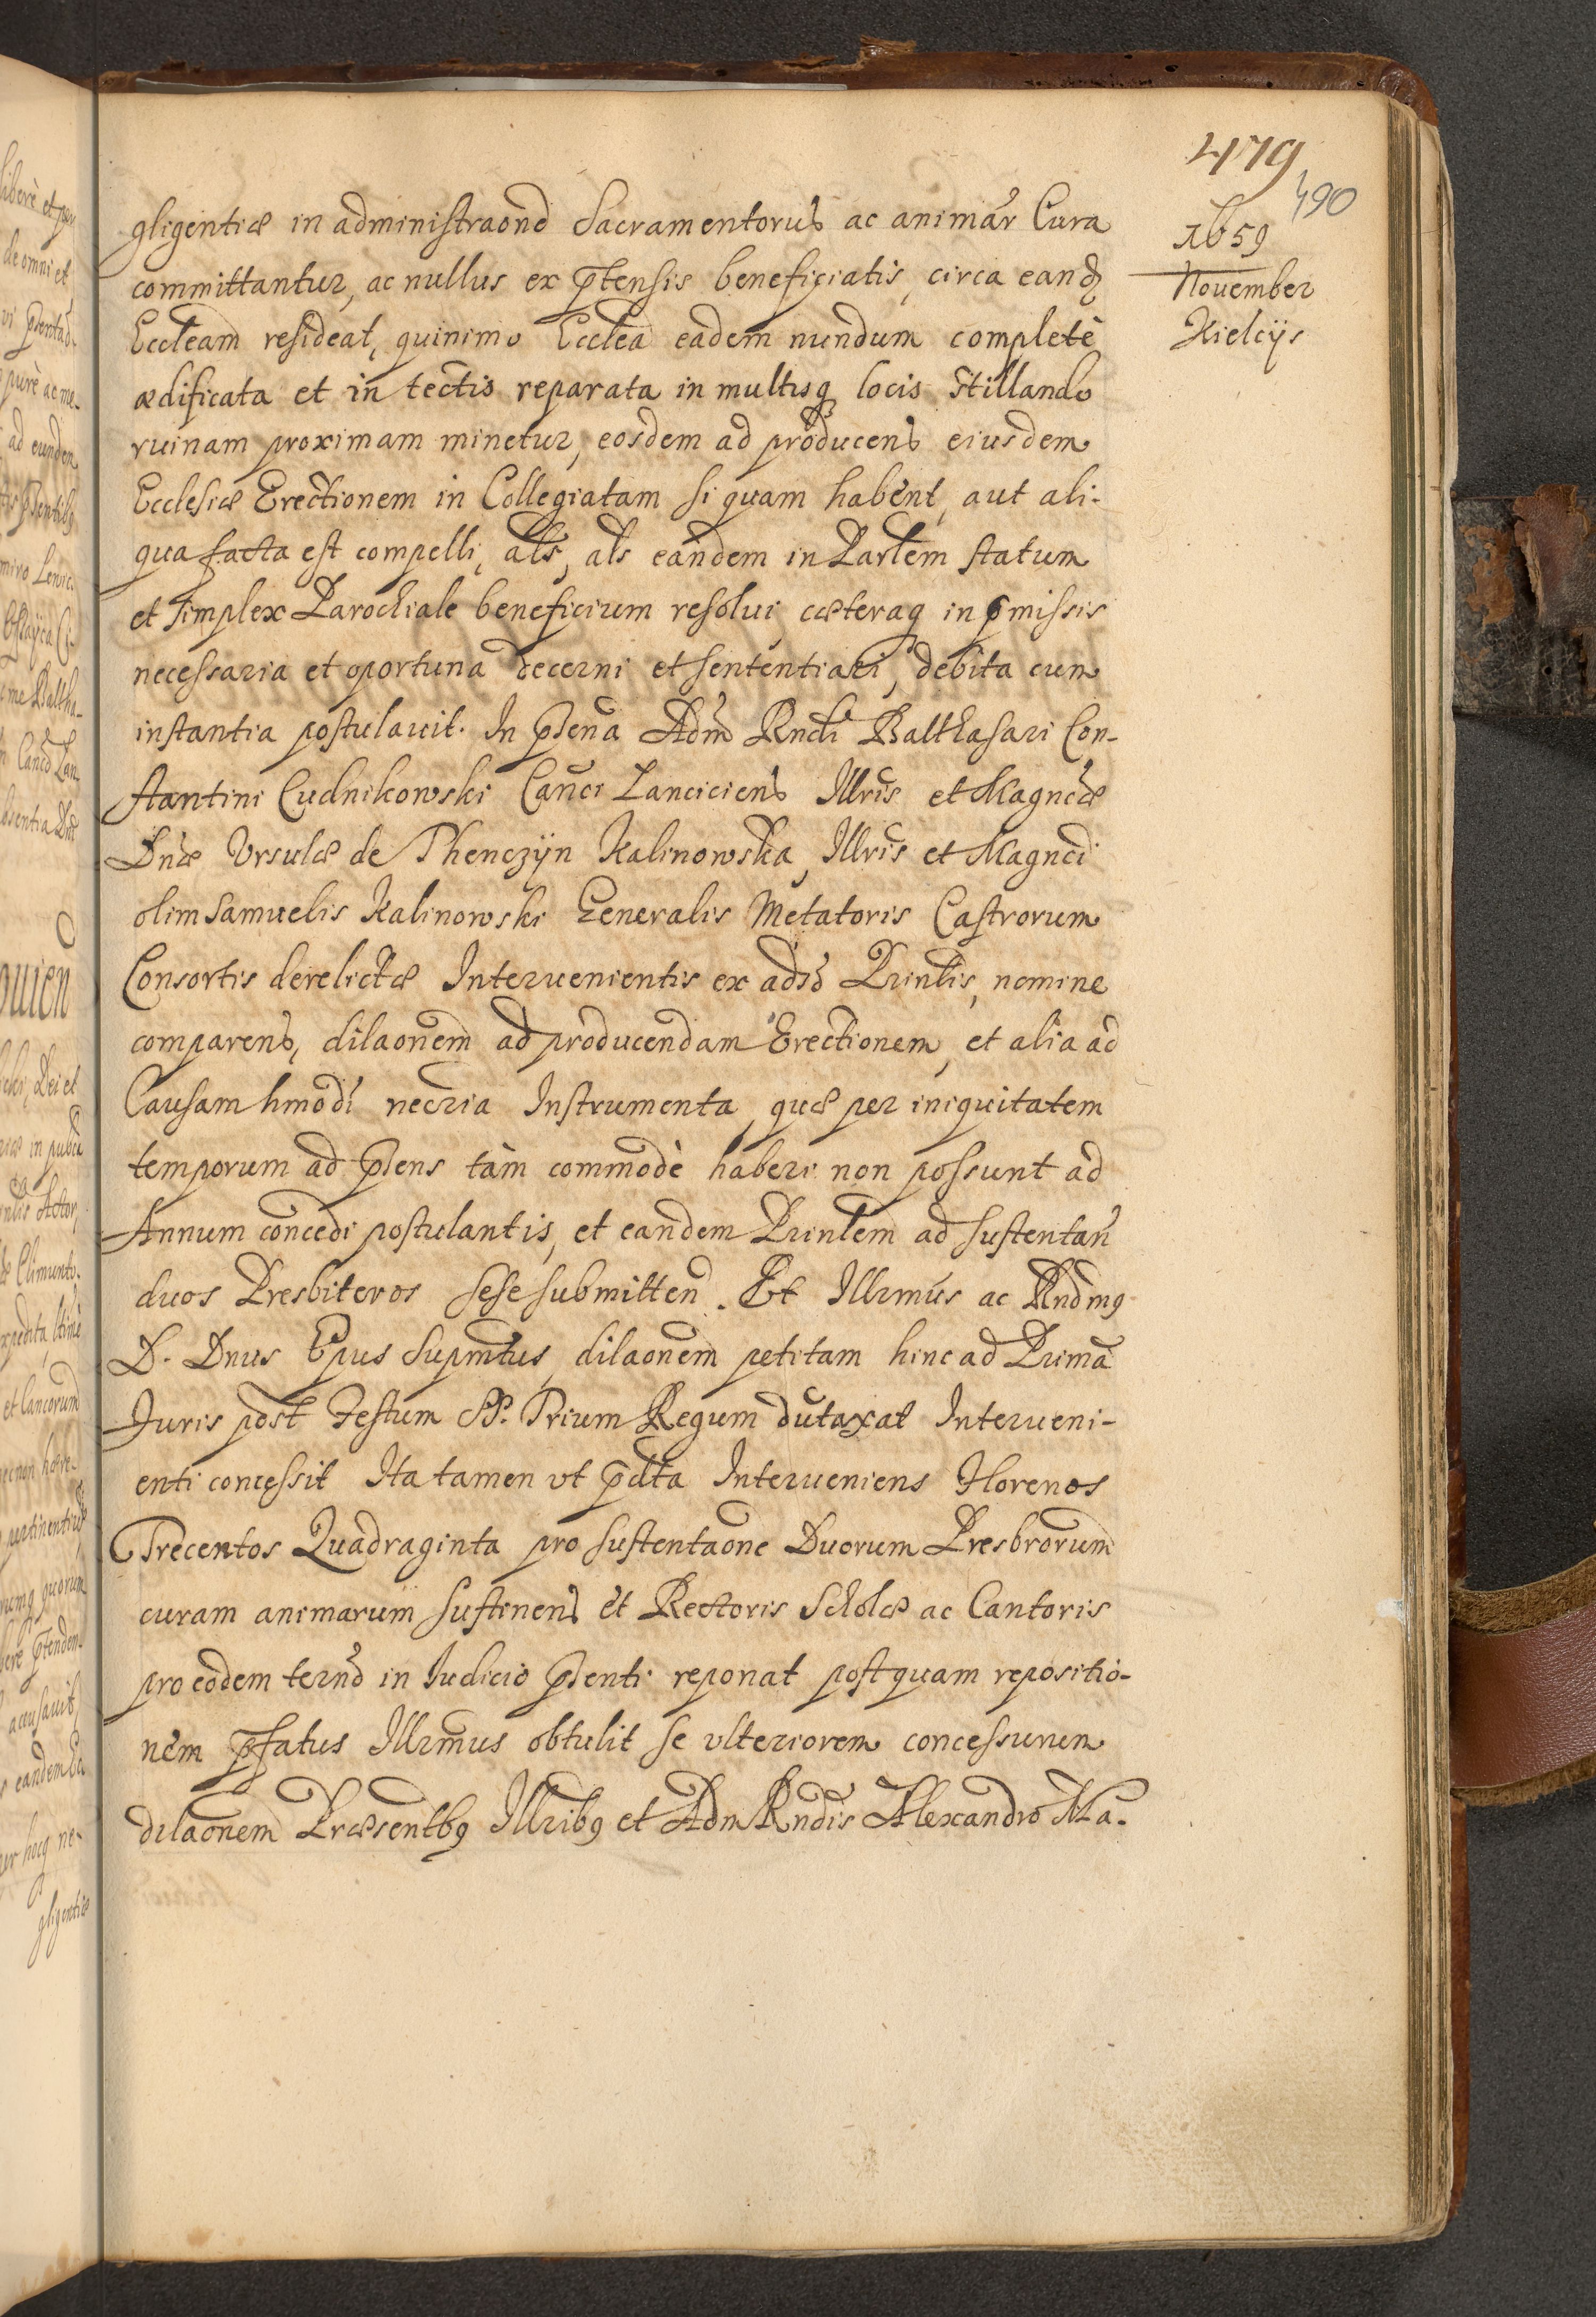 479
490
1659
November
Kielcijs
gligentiæ in administraond Sacramentorum ac animar Cura
committantur, ac nullus ex ptensis beneficiatis, circa eandem
Eccleam resideat, quinimo Ecclea eadem nundum completè
ædificata et in tectis reparata in multisq locis Stillando
ruinam proximam minetur, eosdem ad producend eiusdem
Ecclesiæ Erectionem in Collegiatam si quam habent, aut ali-
qua facta est compelli, als, als eandem in Parlem statum
et simplex Parochiale beneficium resolui cæteraq in pmissis
necessaria et oportuna decerni et sententiari, debita cum
instantia postulauit. In pscna Adm Rndi Balthasari Con-
stantini Cudnikowski Canci Lanciciens Illris et Magncæ
Dnæ Vrsulæ de Thenczÿn Kalinowska, Illris et Magnci
olim Samuelis Kalinowski Generalis Metatoris Castrorum
Consortis derelictæ Interuenientis ex adso Prinlis, nomine
comparens, dilaonem ad producendam Erectionem, et alia ad
Causam hmodi necria Instrumenta, quæ per iniquitatem
temporum ad psens tàm commodè haberi non possunt ad
Annum concedi postulantis, et eandem Prinlem ad sustentan
duos Presbiteros sese submitten. Et Illrmus ac Rndmq
D. Dnus Epus Supmtus dilaonem petitam hinc ad Primã
Juris post Festum SS. Trium Regum dutaxat Interueni-
enti concessit Ita tamen vt pdta Interueniens Florenos
Trecentos Quadraginta pro sustentaone Duorum Presbrorum
curam animarum sustinens et Rectoris Scholæ ac Cantoris
pro eodem ternd in Iudicio psenti reponat postquam repositio-
nem pfatus Illrmus obtulit se vlteriorem concessurum
dilaonem Præsentbq Illribq et Adm Rndis Alexandro Ma-